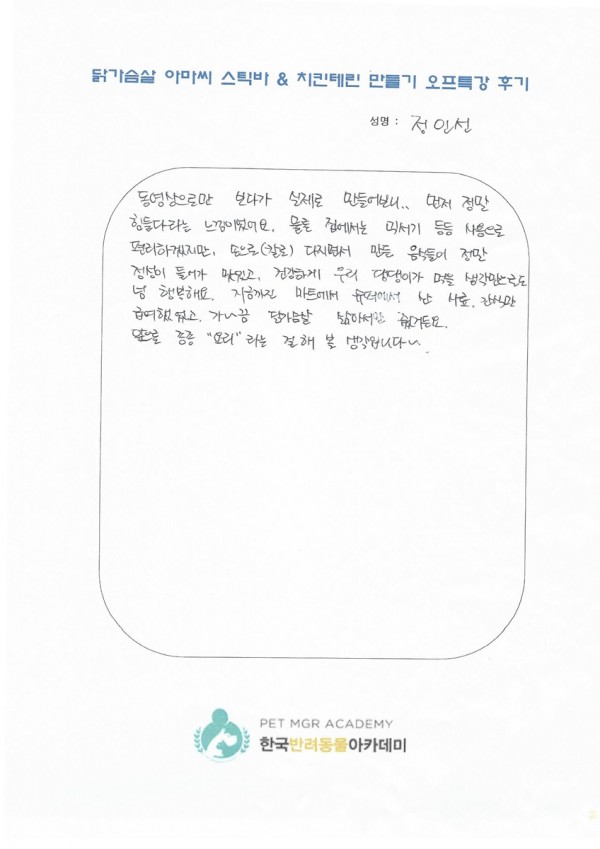 닭가슴살 아마씨 스틱바 & 치킨테린 만들기 오프특강 후기
성명 : 정인선
동영상으로만 보다가 실제로 만들어보니.. 먼저 정말
힘들다라는 느낌이었어요. 물론 집에서는 믹서기 등등 사용으로
편리하겠지만, 손으로(칼로) 다지면서 만든 음식들이 정말
정성이 들어가 맛있고, 건강하게 우리 댕댕이가 먹을 생각만으로도
넘 행복해요. 지금까진 마트에서 슈퍼에서 산 사료, 간식만
급여했었고, 가~끔 닭가슴살 삶아서만 줬거든요.
앞으로 종종 "요리"라는 걸 해 볼 생각입니다~
PET MGR ACADEMY
한국반려동물아카데미